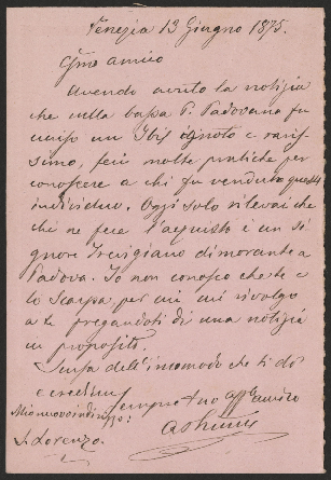 Venezia 13 Giugno 1875.
Cmo amico
Avendo avuto la notizia
che nella bassa P. Padovana fu
ucciso un Ibis ignoto e raris-
simo, feci molte pratiche per
conoscere a chi fu venduto questo
individuo. Oggi solo rilevai che
chi ne fece l'acquisto è un si-
gnore Trevigiano dimorante a
Padova. Io non conosco che te e
lo Scarpa, per cui mi rivolgo
a te pregandoti di una notizia
in proposito.
Scusa dell'incomodo che ti dò
e credimi
sempre tuo aff. amico
Mio nuovo indirizzo:
S. Lorenzo.